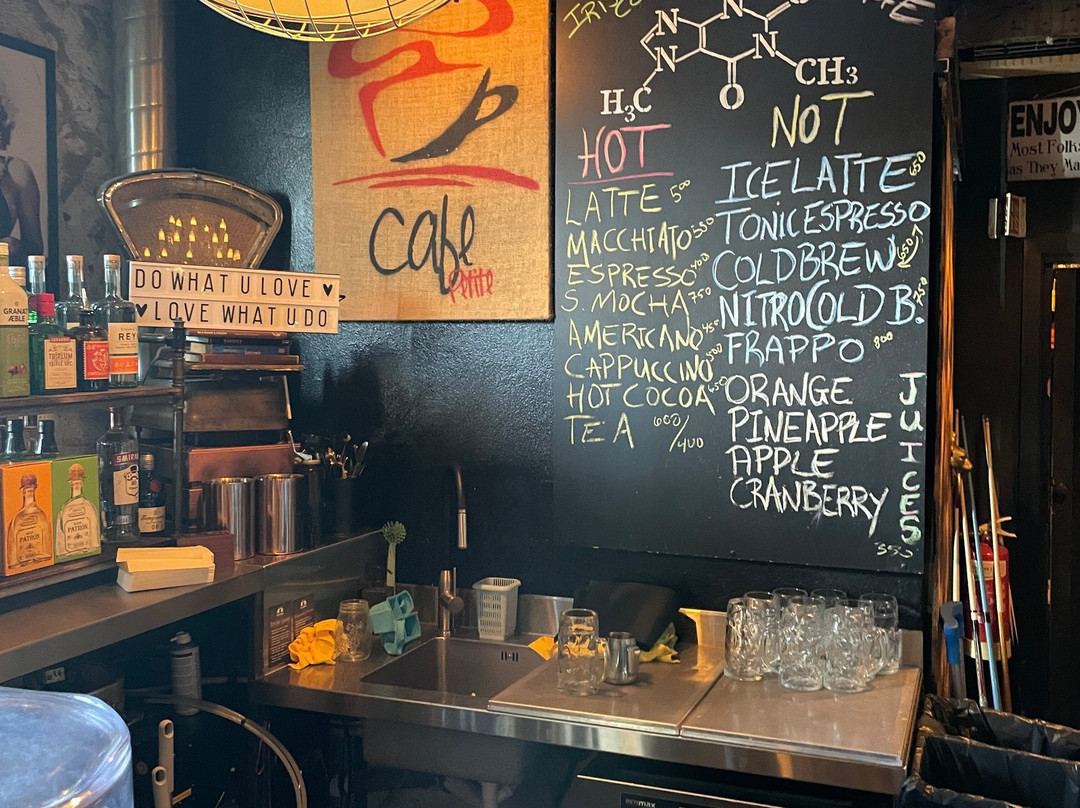 N
N
N
N
CH3
H3C
O
HOT
LATTE 5⁰⁰
MACCHIATO 5⁵⁰
ESPRESSO 4⁰⁰
S. MOCHA 7⁵⁰
AMERICANO 4⁵⁰
CAPPUCCINO 5⁰⁰
HOT COCOA 6⁵⁰
TEA 6⁰⁰/4⁰⁰
NOT
ICE LATTE 6⁵⁰
TONIC ESPRESSO
COLD BREW 6⁵⁰
NITRO COLD B. 7⁵⁰
FRAPPO 8⁰⁰
ORANGE
PINEAPPLE
APPLE
CRANBERRY
JUICES
3⁵⁰
cafe
Petite
DO WHAT U LOVE ♥
♥ LOVE WHAT U DO
ENJOY
Most Folk
as They Ma
REY
SMIRN
PATRON
PATRON